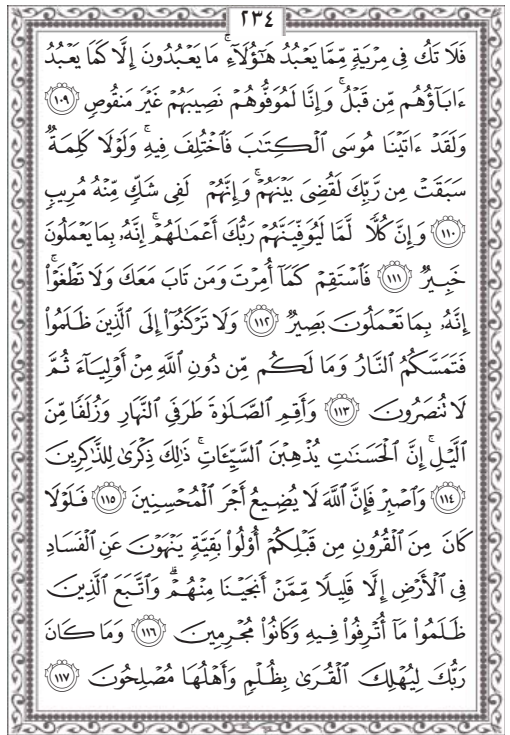 ٢٣٤
فَلَا تَكُ فِى مِرْيَةٍ مِّمَّا يَعْبُدُ هَـٰٓؤُلَآءِ ۚ مَا يَعْبُدُونَ إِلَّا كَمَا يَعْبُدُ
ءَابَآؤُهُم مِّن قَبْلُ ۚ وَإِنَّا لَمُوَفُّوهُمْ نَصِيبَهُمْ غَيْرَ مَنقُوصٍ ١٠٩
وَلَقَدْ ءَاتَيْنَا مُوسَى ٱلْكِتَـٰبَ فَٱخْتُلِفَ فِيهِ ۚ وَلَوْلَا كَلِمَةٌ
سَبَقَتْ مِن رَّبِّكَ لَقُضِىَ بَيْنَهُمْ ۚ وَإِنَّهُمْ لَفِى شَكٍّ مِّنْهُ مُرِيبٍ
١١٠ وَإِنَّ كُلًّا لَّمَّا لَيُوَفِّيَنَّهُمْ رَبُّكَ أَعْمَـٰلَهُمْ ۚ إِنَّهُۥ بِمَا يَعْمَلُونَ
خَبِيرٌ ١١١ فَٱسْتَقِمْ كَمَآ أُمِرْتَ وَمَن تَابَ مَعَكَ وَلَا تَطْغَوْا۟ ۚ
إِنَّهُۥ بِمَا تَعْمَلُونَ بَصِيرٌ ١١٢ وَلَا تَرْكَنُوٓا۟ إِلَى ٱلَّذِينَ ظَلَمُوا۟
فَتَمَسَّكُمُ ٱلنَّارُ وَمَا لَكُم مِّن دُونِ ٱللَّهِ مِنْ أَوْلِيَآءَ ثُمَّ
لَا تُنصَرُونَ ١١٣ وَأَقِمِ ٱلصَّلَوٰةَ طَرَفَىِ ٱلنَّهَارِ وَزُلَفًا مِّنَ
ٱلَّيْلِ ۚ إِنَّ ٱلْحَسَنَـٰتِ يُذْهِبْنَ ٱلسَّيِّـَٔاتِ ۚ ذَٰلِكَ ذِكْرَىٰ لِلذَّٰكِرِينَ
١١٤ وَٱصْبِرْ فَإِنَّ ٱللَّهَ لَا يُضِيعُ أَجْرَ ٱلْمُحْسِنِينَ ١١٥ فَلَوْلَا
كَانَ مِنَ ٱلْقُرُونِ مِن قَبْلِكُمْ أُو۟لُوا۟ بَقِيَّةٍ يَنْهَوْنَ عَنِ ٱلْفَسَادِ
فِى ٱلْأَرْضِ إِلَّا قَلِيلًا مِّمَّنْ أَنجَيْنَا مِنْهُمْ ۗ وَٱتَّبَعَ ٱلَّذِينَ
ظَلَمُوا۟ مَآ أُتْرِفُوا۟ فِيهِ وَكَانُوا۟ مُجْرِمِينَ ١١٦ وَمَا كَانَ
رَبُّكَ لِيُهْلِكَ ٱلْقُرَىٰ بِظُلْمٍ وَأَهْلُهَا مُصْلِحُونَ ١١٧